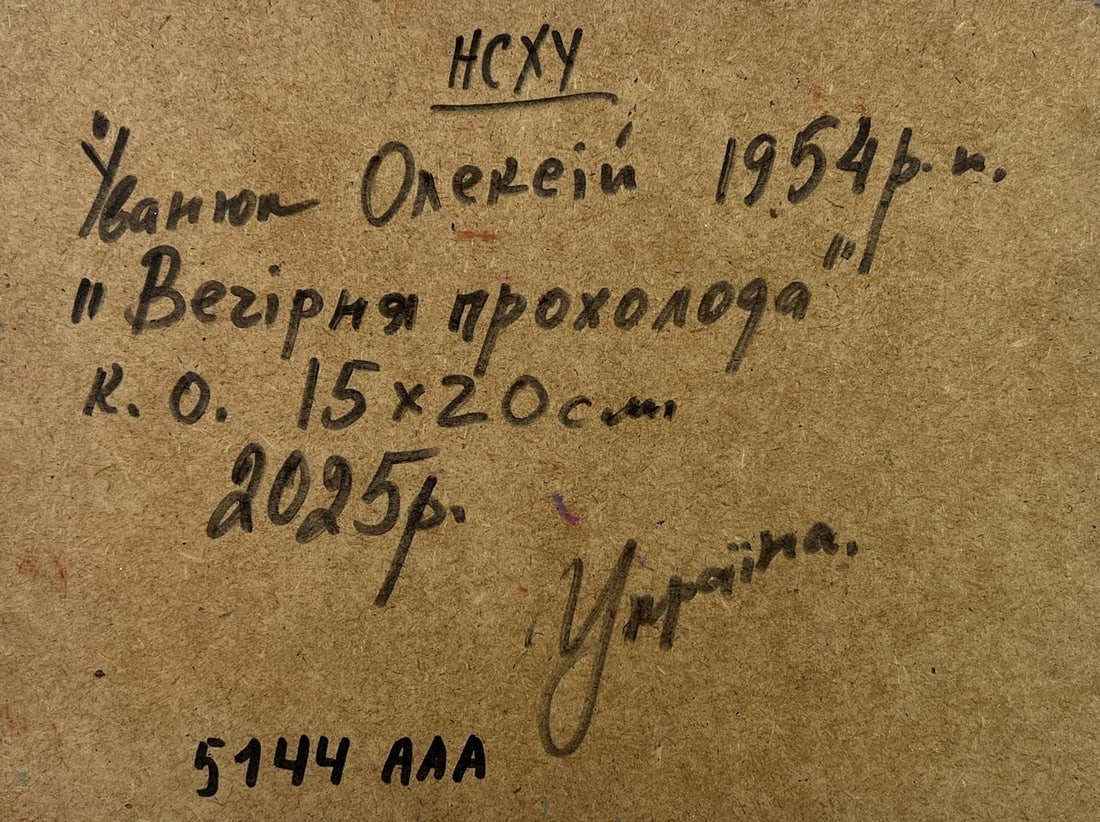 НСХУ
Іванюк Олексій 1954 р. н.
"Вечірня прохолода"
к. о. 15x20 см
2025р.
Україна.
5144 ААА